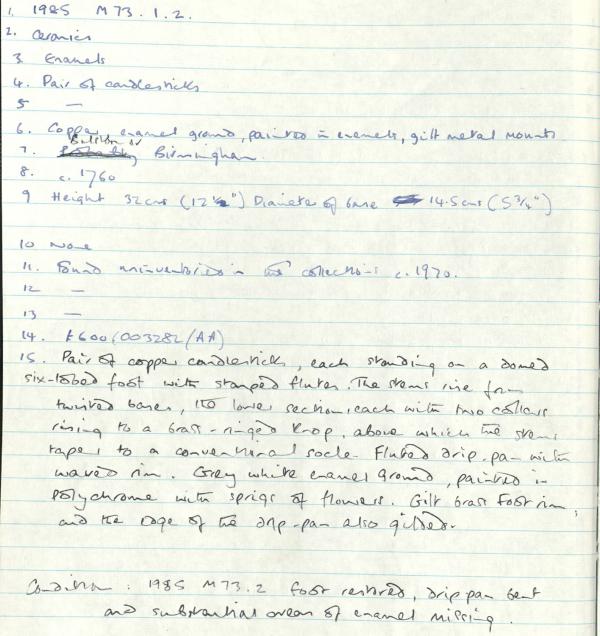 1. 1985 M73.1.2.
2. Ceramics
3 Enamels
4. Pair of candlesticks
5 —
6. Copper, enamel ground, painted in enamels, gilt metal mounts
Bilston or
7. Birmingham.
8. c. 1760
9 Height 32cms (12½") Diameter of base 14.5cms (5¾")
10 None
11. Found uninventoried in the collections c. 1970.
12 —
13 —
14. £600/003282/AA)
15. Pair of copper candlesticks, each standing on a domed
six-lobed foot with stamped flutes. The stems rise from
twisted bases, the lower section, each with two collars
rising to a brass-ringed knop, above which the stems
taper to a conventional socle. Fluted drip-pan with
waved rim. Grey white enamel ground, painted in
polychrome with sprigs of flowers. Gilt brass foot rim,
and the edge of the drip-pan also gilded.
Condition: 1985 M73.2 foot restored, drip pan bent
and substantial areas of enamel missing.